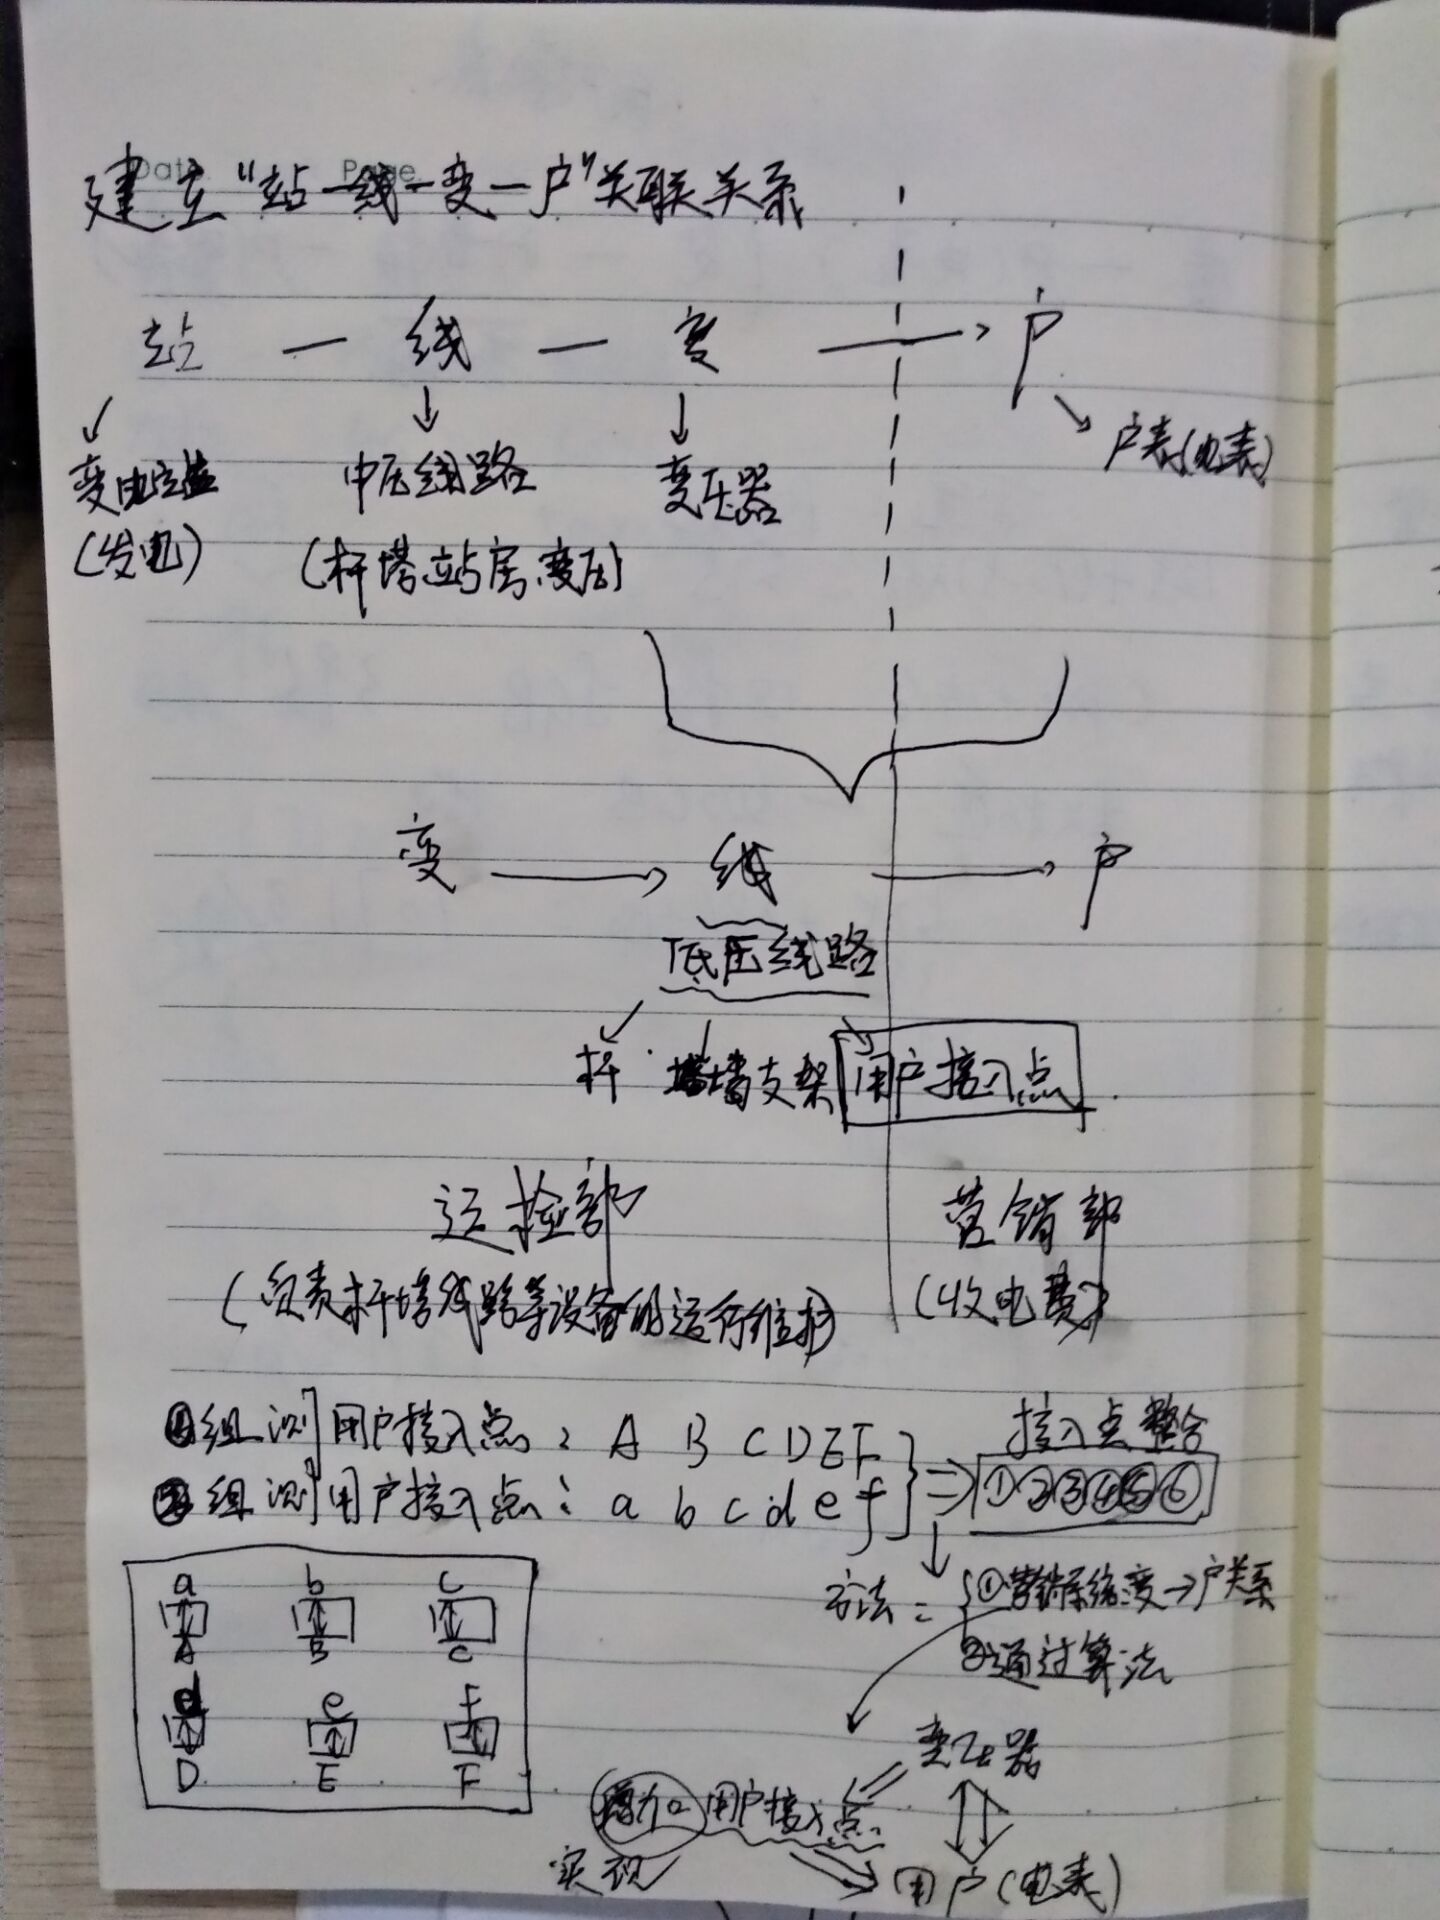 Date Page
建立"站一线一变一户"关联关系
站 — 线 — 变 → 户
变电站 中压线路 变压器 户表(电表)
(发电) (杆塔.站房.变压)
变 → 线 → 户
低压线路
杆. 墙支架 用户接入点
运检部 营销部
(负责杆塔线路等设备的运行维护) (收电费)
①组 测 用户接入点: A B C D E F 接入点整合
②组 测 用户接入点: a b c d e f ⇒ ①②③④⑤⑥
a b c
A B C
d e f
D E F
方法= ①营销系统变→户关系
②通过算法
变压器
增加 用户接入点
实现 用户(电表)